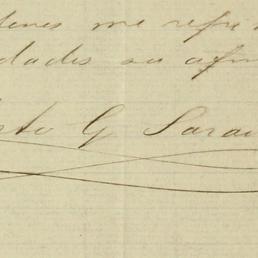 denes me refi
dades su af
sto G Sarai